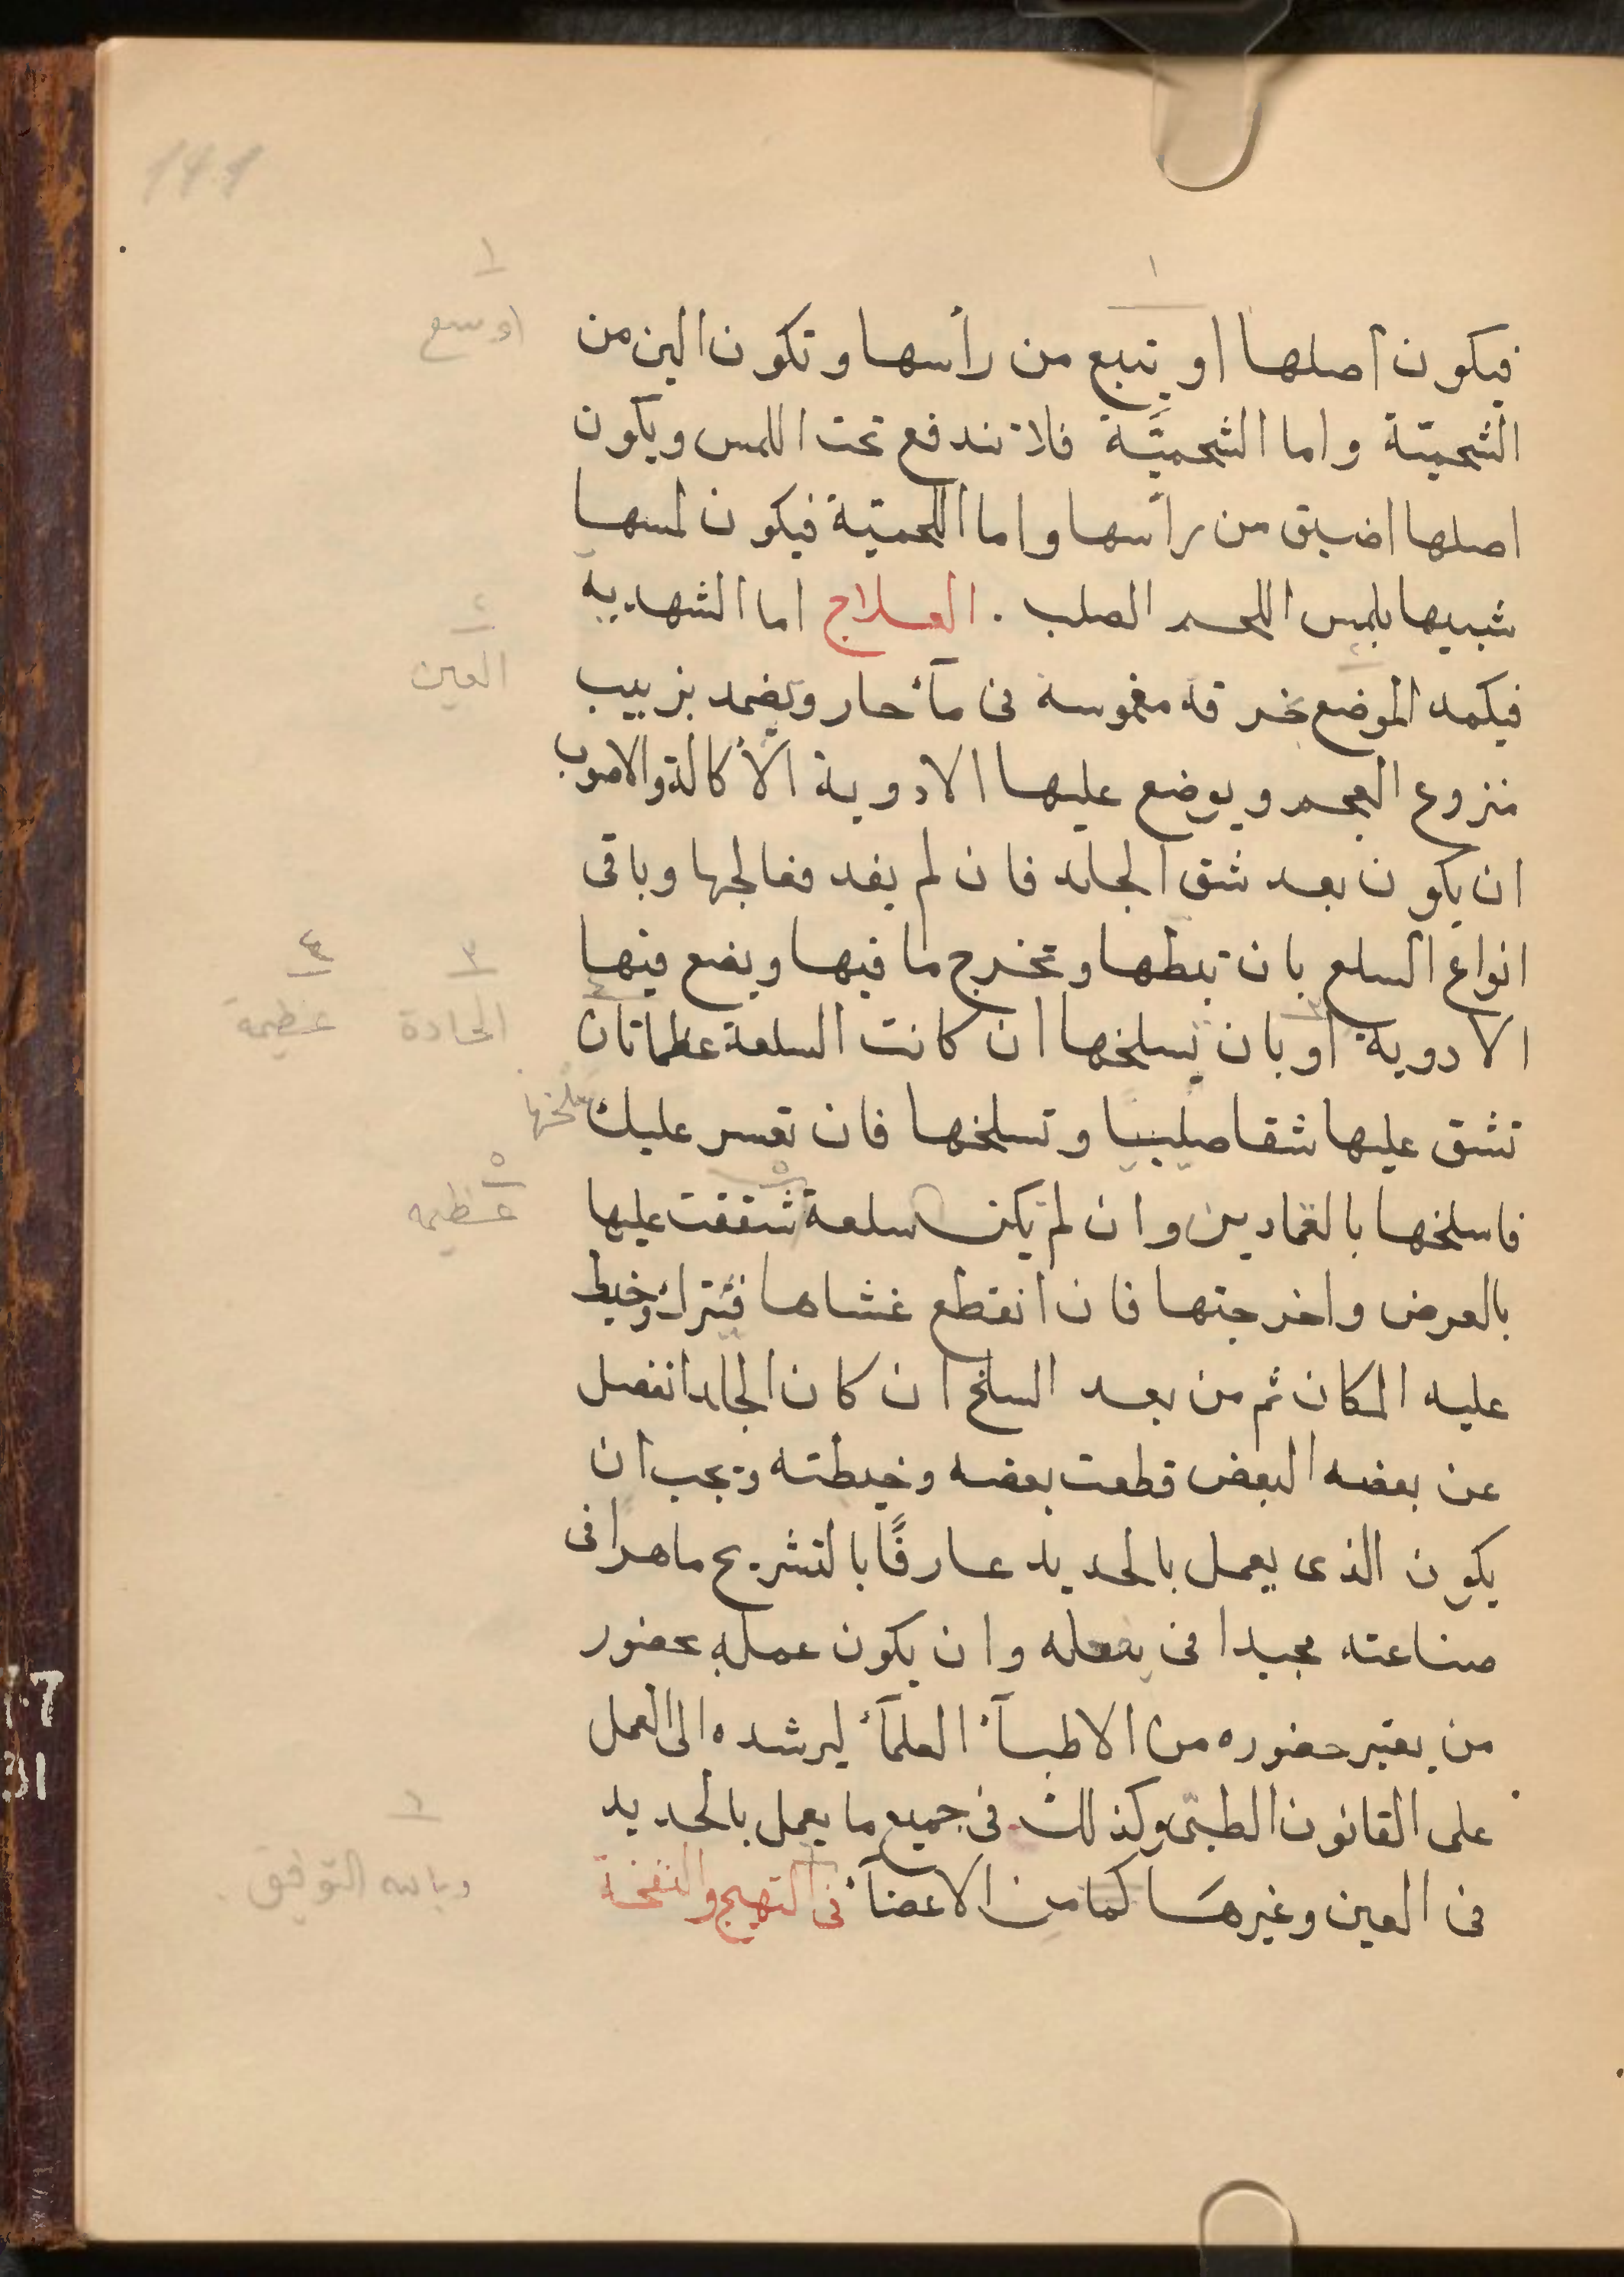 فيكون اصلها او يتبع من رأسها وتكون الين من
الشحميّة واما الشحميَّة فلا تندفع تحت اللمس ويكون
اصلها اضيق من رأسها واما اللحميّة فيكون لمسها
شبيها بلمس اللحم الصلب . العلاج اما الشهدية
فيكمد الموضع بخرقة مغموسة فى مآء حار ويضمد بزبيب
منزوع العجم ويوضع عليها الادوية الأكالة والاصوب
ان يكون بعد شق الجلد فان لم يفد فعالجها وباقى
انواع السلع بان تبطها وتخرج ما فيها ويضع فيها
الادوية او بان تسلخها ان كانت السلعة عظما تان
تشق عليها شقا صليبيا وتسلخها فان تعسر عليك سلخها
فاسلخها بالقمادين وان لم يكن سلعة شققت عليها
بالعرض واخرجتها فان انقطع غشاها فيترك وخيط
عليه المكان ثم من بعد السلخ ان كان الجلد انفصل
عن بعضه البعض قطعت بعضه وخيطته ويجب ان
يكون الذى يعمل بالحديد عارفًا بالتشريح ماهرا فى
صناعته مجيدا فى يفعله وان يكون عمله بحضور
من يعتبر حضوره من الاطبآء العلمآء ليرشده الى العمل
على القانون الطبّى وكذلك فى جميع ما يعمل بالحديد
فى العين وغيرها كما من الاعضآء فى التهيج والنفخة
١
١
اوسع
٢
العين
٣
الحادة
٤
عظيمة
٥
عظيمه
٦
وبالله التوفيق .